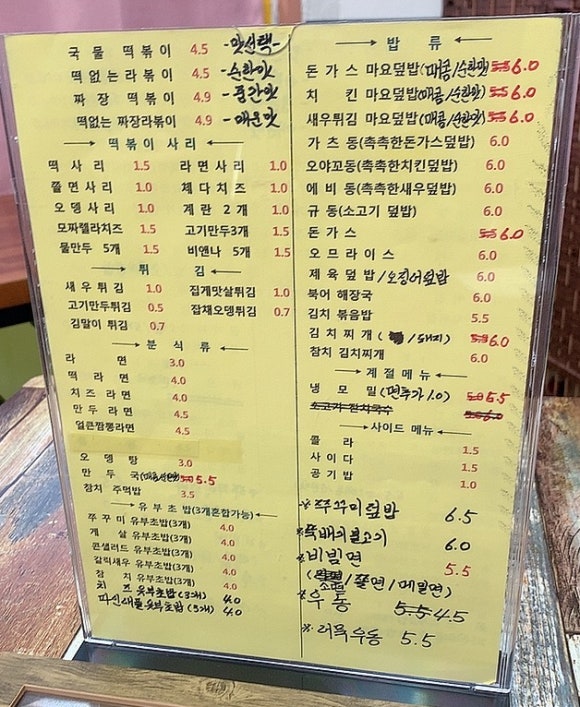 국물 떡볶이 4.5 -맛선택-
떡없는라볶이 4.5 -순한맛
짜장 떡볶이 4.9 -중간맛
떡없는 짜장라볶이 4.9 -매운맛
떡볶이 사리
떡 사리 1.5 라면사리 1.0
쫄면사리 1.0 체다치즈 1.0
오뎅사리 1.0 계란 2개 1.0
모짜렐라치즈 1.5 고기만두3개 1.5
물만두 5개 1.5 비엔나 5개 1.5
튀 김
새우튀김 1.0 집게맛살튀김 1.0
고기만두튀김 0.5 잡채오뎅튀김 0.7
김말이 튀김 0.7
분식류
라 면 3.0
떡 라면 4.0
치즈 라면 4.0
만두 라면 4.5
얼큰짬뽕라면 4.5
오 뎅 탕 3.0
만 두 국 5.5
참치 주먹밥 3.5
유부초밥(3개혼합가능)
쭈꾸미 유부초밥(3개) 4.0
게 살 유부초밥(3개) 4.0
콘샐러드 유부초밥(3개) 4.0
갈릭새우 유부초밥(3개) 4.0
참 치 유부초밥(3개) 4.0
치 즈 유부초밥(3개) 4.0
유부초밥(3개) 4.0
밥 류
돈가스 마요덮밥(매콤/순한맛) 5.5 6.0
치 킨 마요덮밥(매콤/순한맛) 5.5 6.0
새우튀김 마요덮밥(매콤/순한맛) 5.5 6.0
가츠동(촉촉한돈가스덮밥) 6.0
오야꼬동(촉촉한치킨덮밥) 6.0
에비동(촉촉한새우덮밥) 6.0
규동(소고기 덮밥) 6.0
돈 가 스 5.5 6.0
오므라이스 6.0
제육덮밥/오징어덮밥 6.0
북어 해장국 6.0
김치 볶음밥 5.5
김치찌개( /돼지) 5.5 6.0
참치 김치찌개 6.0
계절메뉴
냉 모 밀(면추가 1.0) 5.0 5.5
소고기 잔치국수 5.5 6.0
사이드 메뉴
콜 라 1.5
사 이 다 1.5
공 기 밥 1.0
※ 쭈꾸미덮밥 6.5
※뚝배기불고기 6.0
※비빔면 5.5
(소면/쫄면/메밀면)
※우동 5.5 4.5
※ 어묵우동 5.5